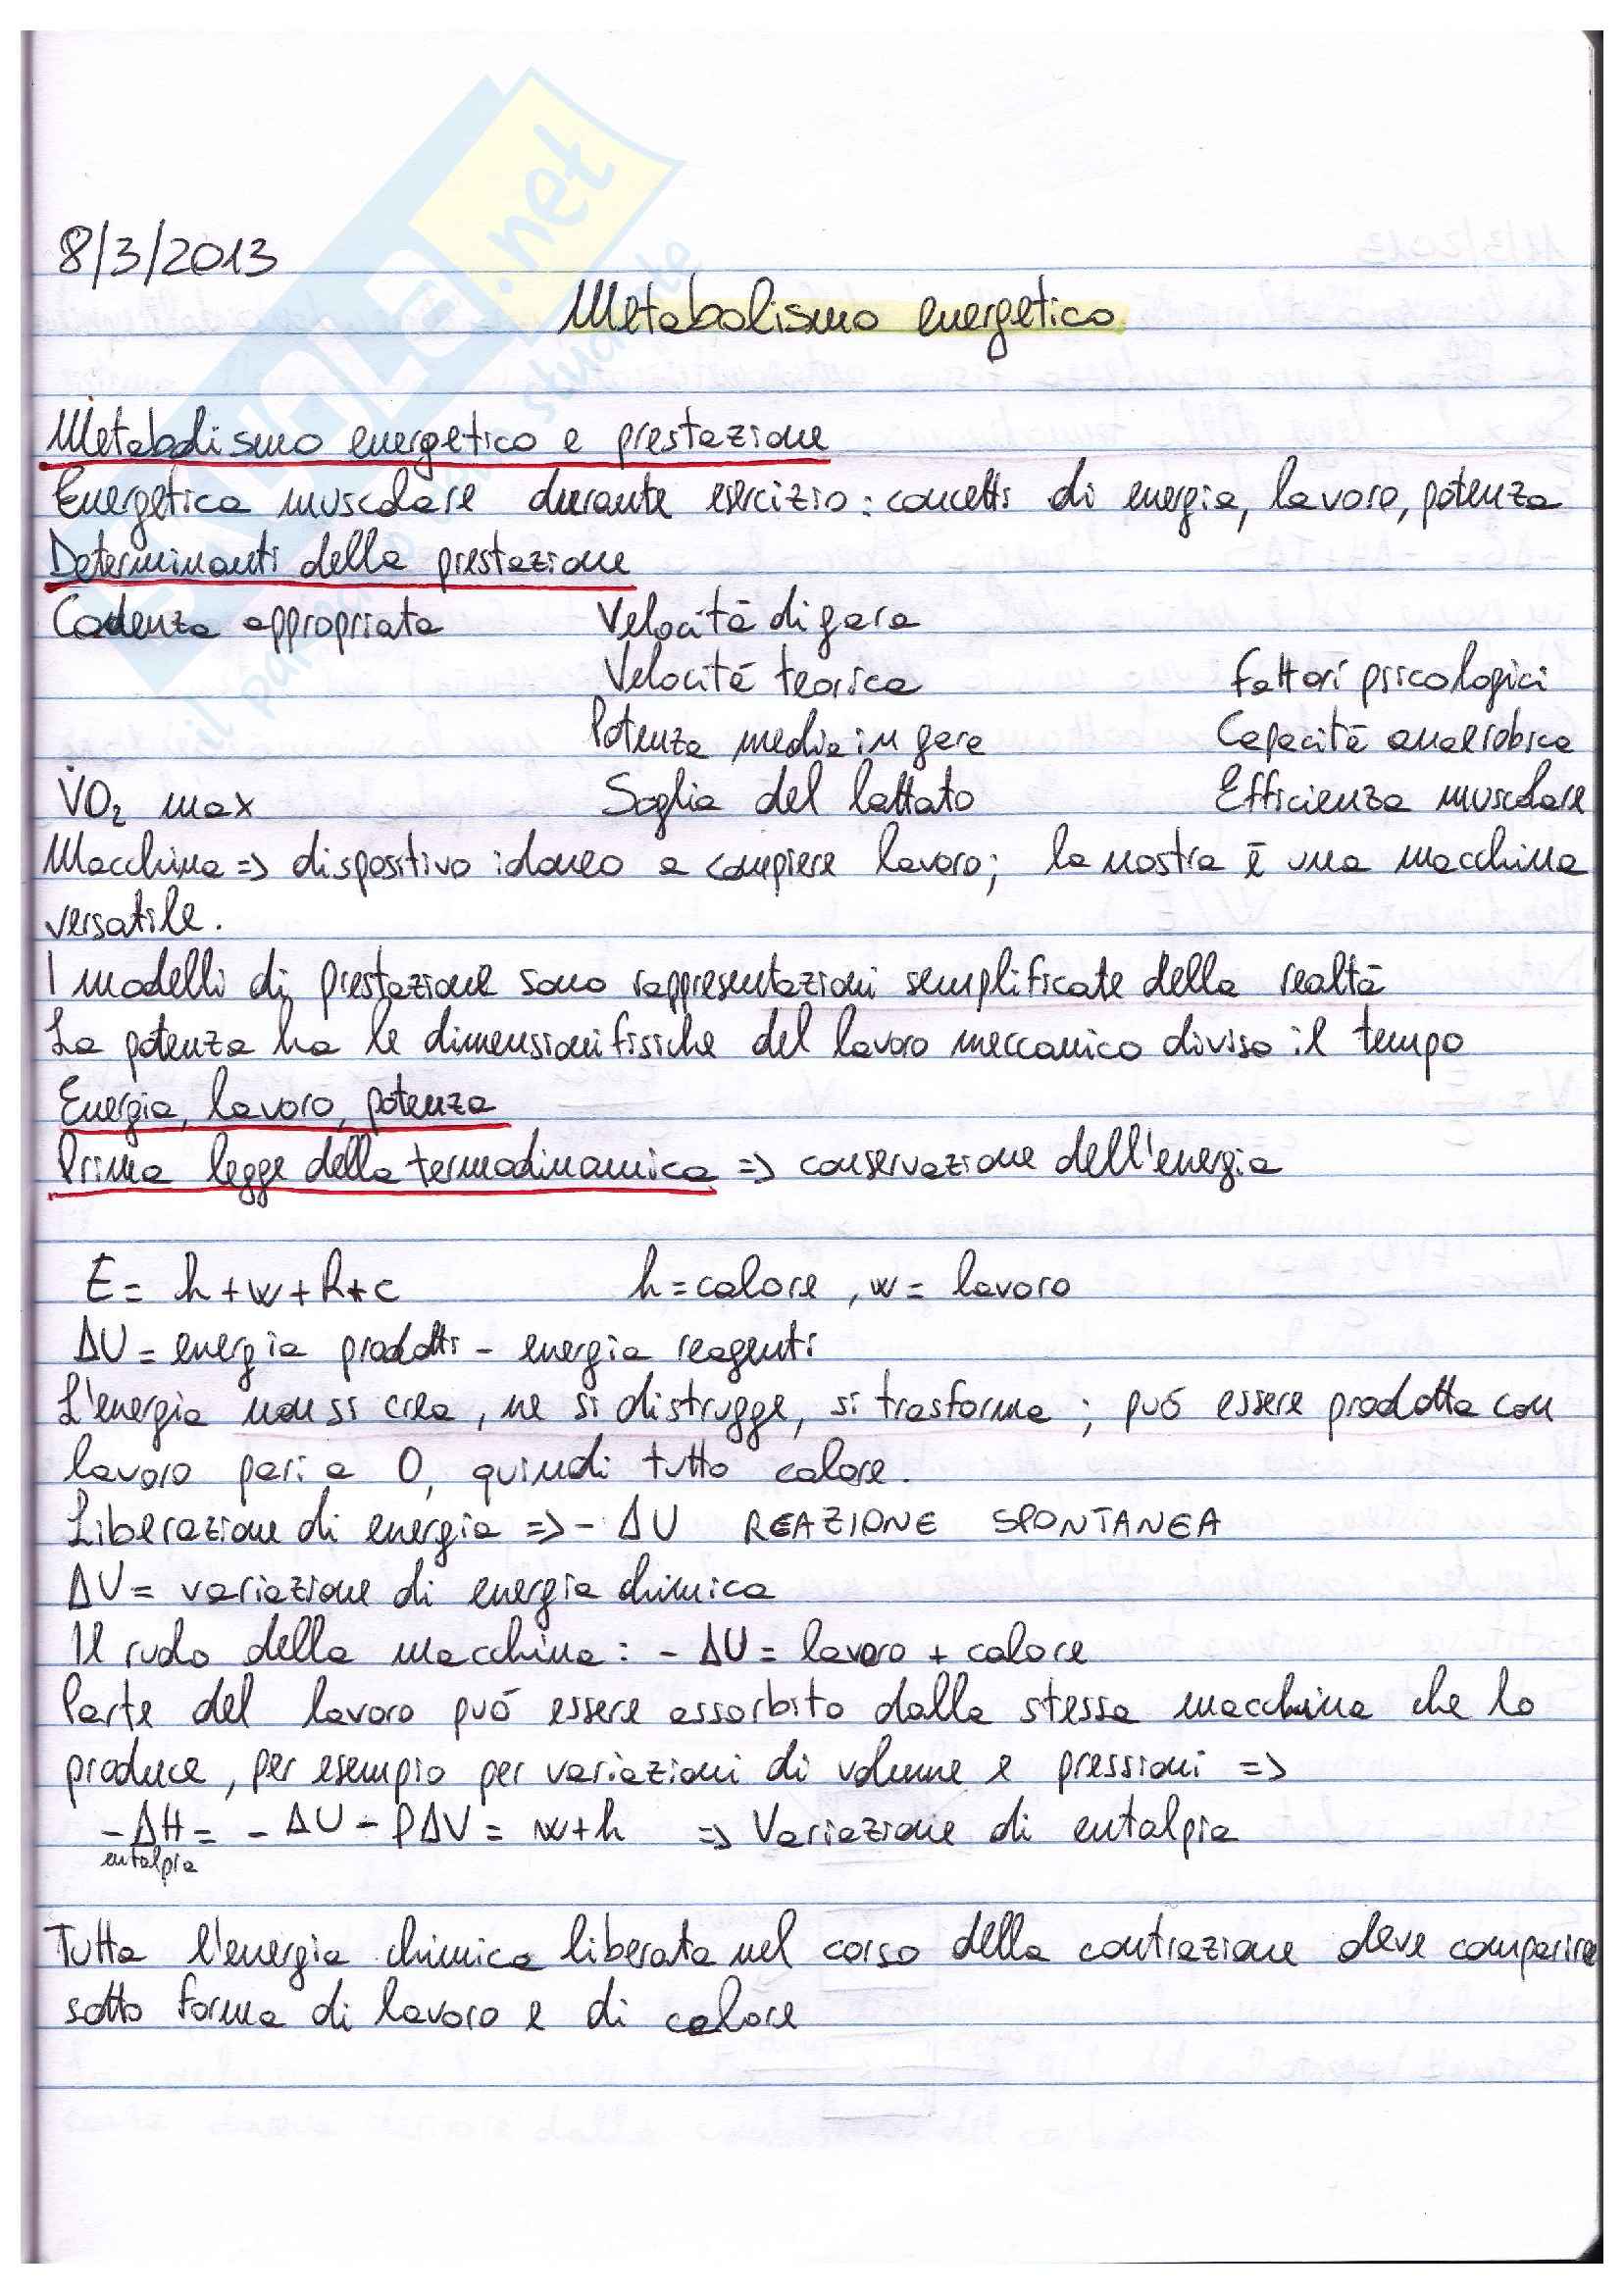 8/3/2013
Metabolismo energetico
Metabolismo energetico e prestazione
Energetica muscolare durante esercizio: concetti di energia, lavoro, potenza
Determinanti della prestazione
Cadenza appropriata Velocità di gara
Velocità teorica Fattori psicologici
Potenza media in gara Capacità anaerobica
V̇O₂ max Soglia del lattato Efficienza muscolare
Macchina => dispositivo idoneo a compiere lavoro; la nostra è una macchina
versatile.
I modelli di prestazione sono rappresentazioni semplificate della realtà
La potenza ha le dimensioni fisiche del lavoro meccanico diviso il tempo
Energia, lavoro, potenza
Prima legge della termodinamica => conservazione dell'energia
E = h+w+k+c h = calore, w = lavoro
ΔU = energia prodotti - energia reagenti
L'energia non si crea, ne si distrugge, si trasforma; può essere prodotta con
lavoro pari a 0, quindi tutto calore.
Liberazione di energia => - ΔU REAZIONE SPONTANEA
ΔU = variazione di energia chimica
Il ruolo della macchina: - ΔU = lavoro + calore
Parte del lavoro può essere assorbito dalla stessa macchina che lo
produce, per esempio per variazioni di volume e pressioni =>
-ΔH = - ΔU - PΔV = w+h => Variazione di entalpia
entalpia
Tutta l'energia chimica liberata nel corso della contrazione deve comparire
sotto forma di lavoro e di calore